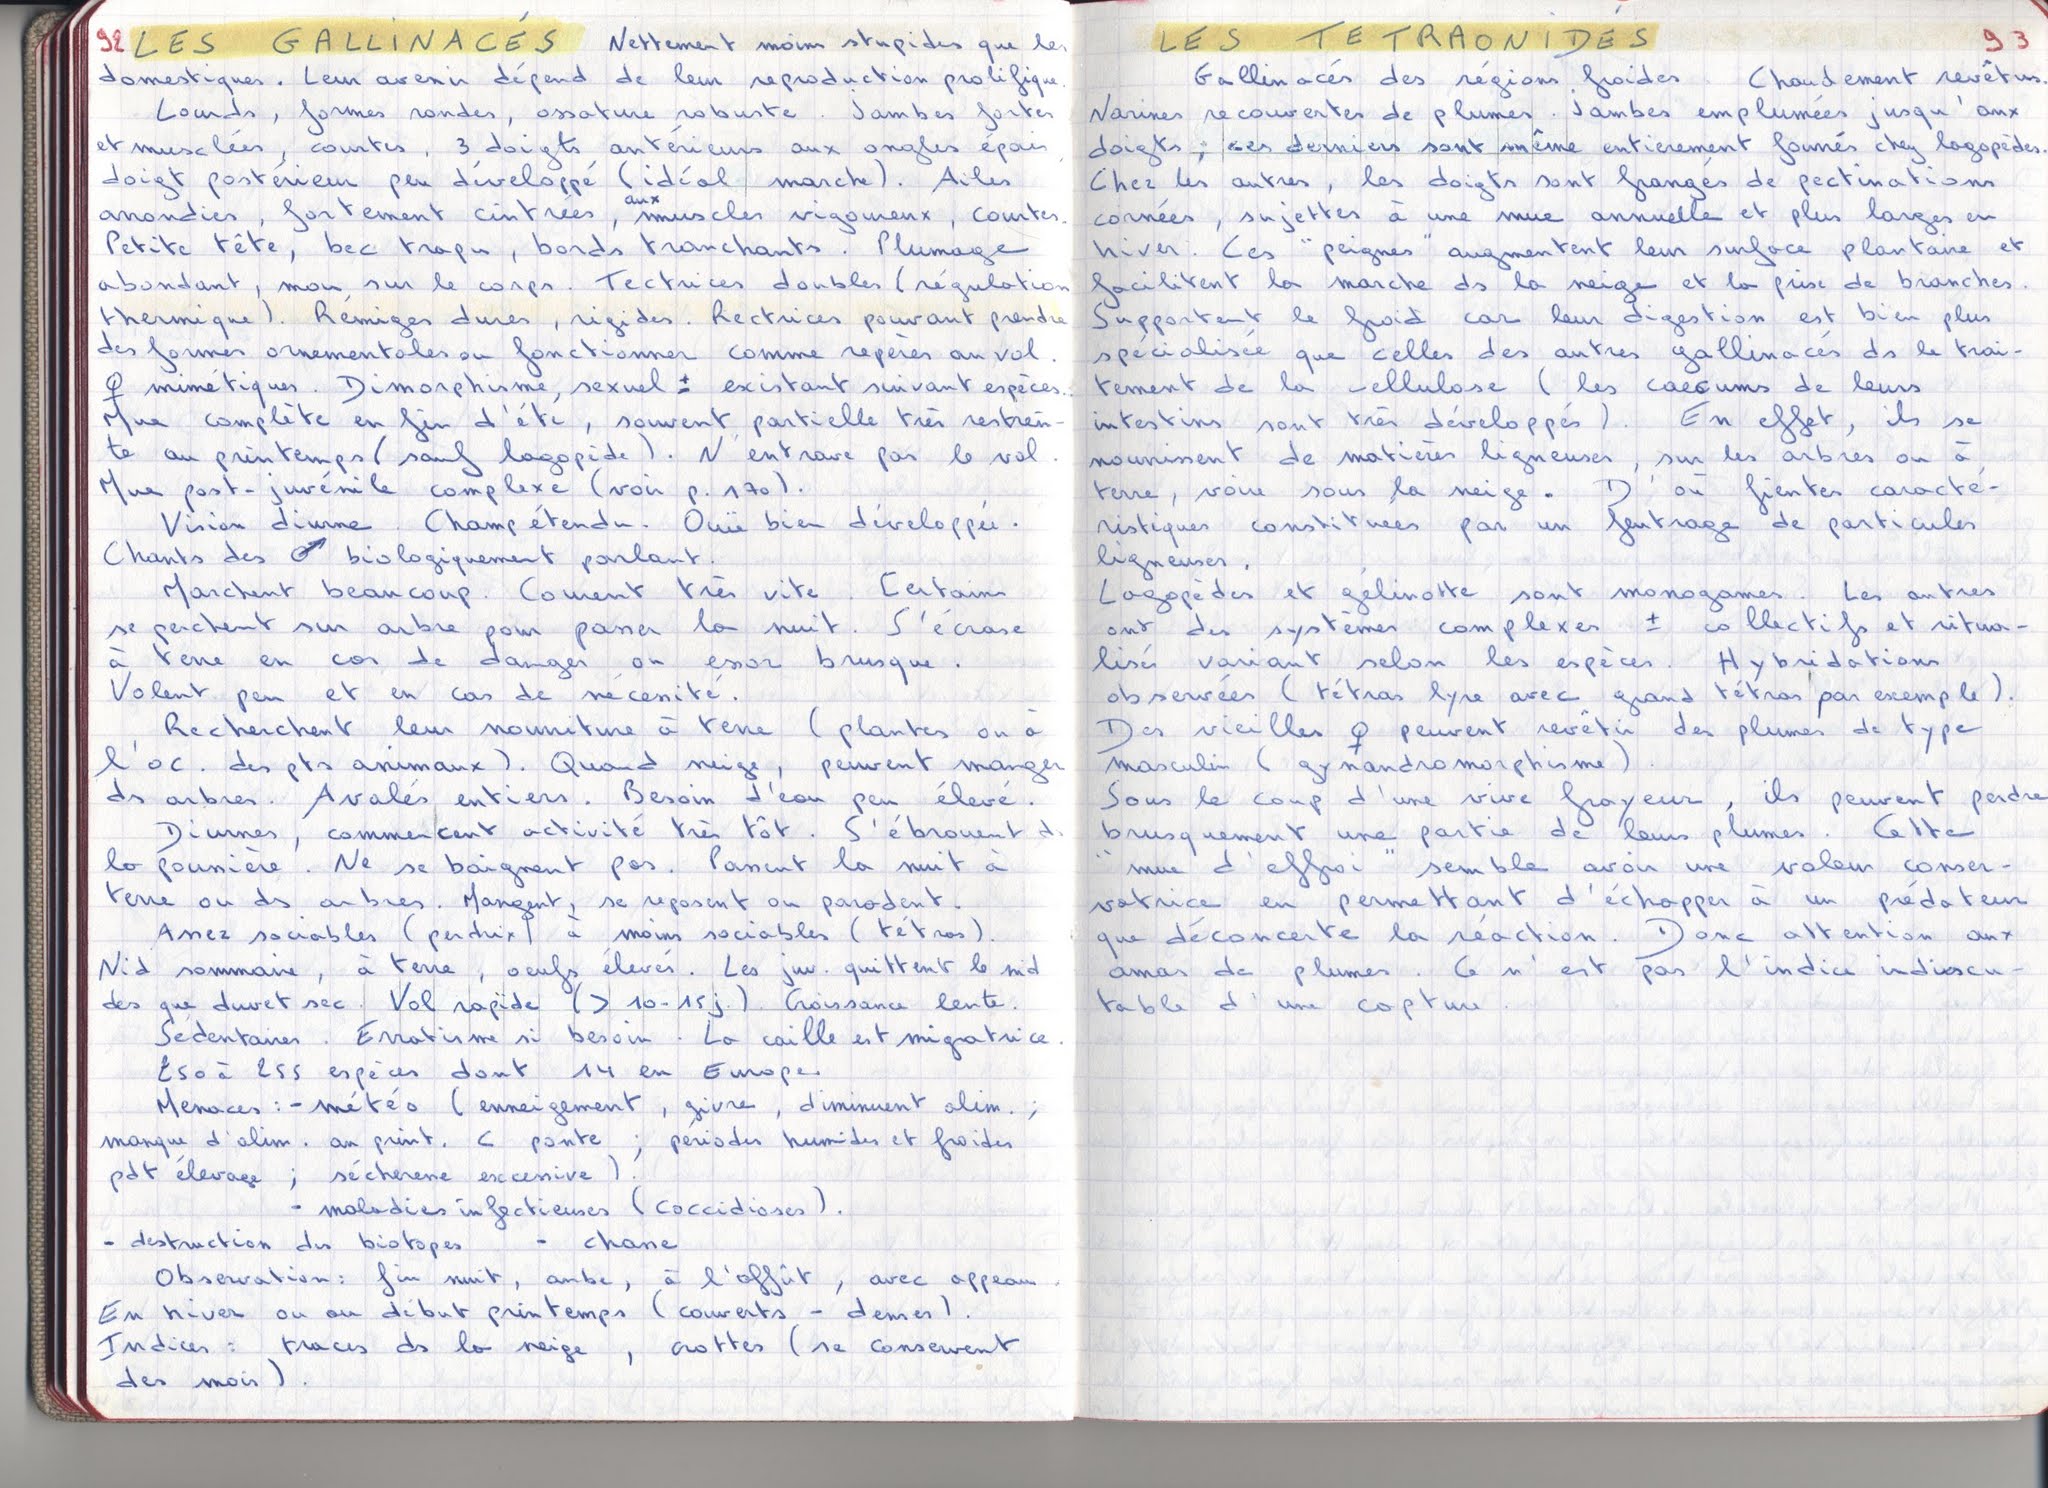 92 LES GALLINACÉS Nettement moins stupides que les
domestiques. Leur avenir dépend de leur reproduction prolifique.
Lourds, formes rondes, ossature robuste. Jambes fortes
et musclées, courtes, 3 doigts antérieurs aux ongles épais,
doigt postérieur peu développé (idéal marche). Ailes
arrondies, fortement cintrées, aux muscles vigoureux, courtes.
Petite tête, bec trapu, bords tranchants. Plumage
abondant, mou sur le corps. Tectrices doubles (régulation
thermique). Rémiges dures, rigides. Rectrices pouvant prendre
des formes ornementales ou fonctionner comme repères au vol.
♀ mimétiques. Dimorphisme sexuel ± existant suivant espèces.
Mue complète en fin d'été, souvent partielle très restrein-
te au printemps (sauf lagopède). N'entrave pas le vol.
Mue post-juvénile complexe (voir p. 170).
Vision diurne. Champ étendu. Ouïe bien développée.
Chants des ♂ biologiquement parlant.
Marchent beaucoup. Courent très vite. Certains
se perchent sur arbre pour passer la nuit. S'écrase
à terre en cas de danger ou essor brusque.
Volent peu et en cas de nécessité.
Recherchent leur nourriture à terre (plantes ou à
l'oc. des pts animaux). Quand neige, peuvent manger
ds arbres. Avalés entiers. Besoin d'eau peu élevé.
Diurnes, commencent activité très tôt. S'ébrouent ds
la poussière. Ne se baignent pas. Passent la nuit à
terre ou ds arbres. Mangent, se reposent ou paradent.
Assez sociables (perdrix) à moins sociables (tétras).
Nid sommaire, à terre, oeufs élevés. Les juv. quittent le nid
des que duvet sec. Vol rapide (> 10-15 j.). Croissance lente.
Sédentaires. Erratisme si besoin. La caille est migratrice.
250 à 255 espèces dont 14 en Europe.
Menaces : - météo (enneigement, givre, diminuent alim. ;
manque d'alim. au print. < ponte ; périodes humides et froides
pdt élevage ; sécheresse excessive).
- maladies infectieuses (coccidioses).
- destruction des biotopes - chasse
Observation : fin nuit, aube, à l'affût, avec appeau.
En hiver ou au début printemps (couverts - denses).
Indices : traces ds la neige, crottes (se conservent
des mois).
LES TETRAONIDÉS 93
Gallinacés des régions froides. Chaudement revêtus.
Narines recouvertes de plumes. Jambes emplumées jusqu'aux
doigts ; ces derniers sont même entièrement fourrés chez lagopèdes.
Chez les autres, les doigts sont frangés de pectinations
cornées, sujettes à une mue annuelle et plus larges en
hiver. Ces "peignes" augmentent leur surface plantaire et
facilitent la marche ds la neige et la prise de branches.
Supportent le froid car leur digestion est bien plus
spécialisée que celles des autres gallinacés ds le trai-
tement de la cellulose (les caecums de leurs
intestins sont très développés). En effet, ils se
nourrissent de matières ligneuses, sur les arbres ou à
terre, voire sous la neige. D'où fientes caracté-
ristiques constituées par un feutrage de particules
ligneuses.
Lagopèdes et gélinotte sont monogames. Les autres
ont des systèmes complexes ± collectifs et ritua-
lisés variant selon les espèces. Hybridations
observées (tétras lyre avec grand tétras par exemple).
Des vieilles ♀ peuvent revêtir des plumes de type
masculin (gynandromorphisme).
Sous le coup d'une vive frayeur, ils peuvent perdre
brusquement une partie de leurs plumes. Cette
"mue d'effroi" semble avoir une valeur conser-
vatrice en permettant d'échapper à un prédateur
que déconcerte la réaction. Donc attention aux
amas de plumes. Ce n'est pas l'indice indiscu-
table d'une capture.